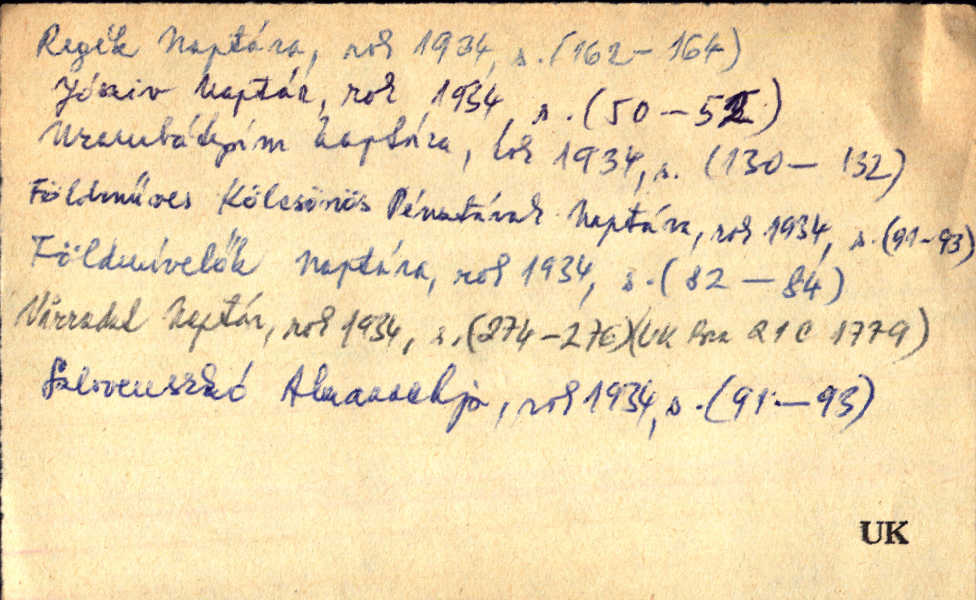 Regék Naptára, rok 1934, s. (162-164)
Jósziv Naptár, rok 1934, s. (50-52)
Uram bátyám Naptára, rok 1934, s. (130-132)
Földműves Kölcsönös Pénztárak Naptára, rok 1934, s. (91-93)
Földmívelők Naptára, rok 1934, s. (82-84)
Virradat Naptár, rok 1934, s. (274-276) (UK Bra 21 C 1779)
Slovenszkó Almanachja, rok 1934, s. (91-93)
UK